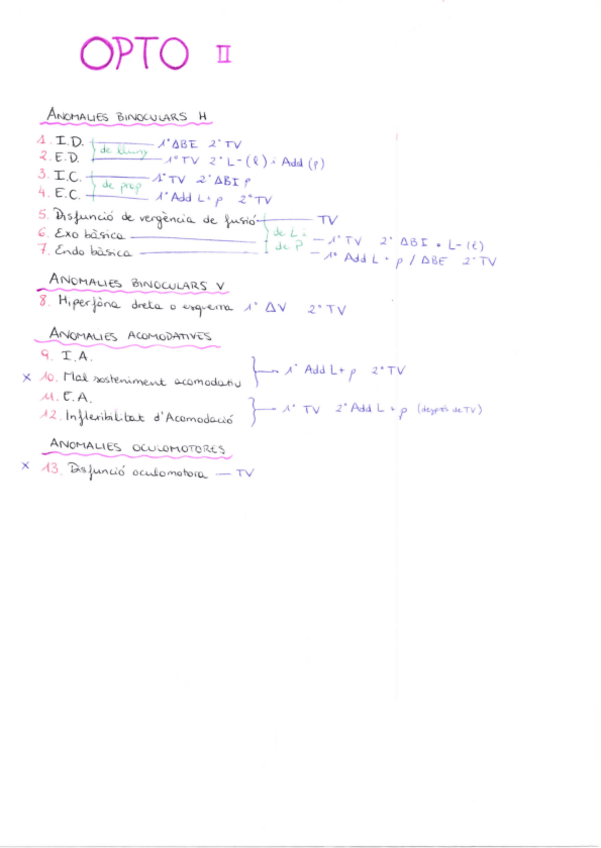 OPTO II
ANOMALIES BINOCULARS H
1. I.D. de lluny 1º ΔBE 2º TV
2. E.D. 1º TV 2º L-(l) i Add (p)
3. I.C. de prop 1º TV 2º ΔBI p
4. E.C. 1º Add L+ p 2º TV
5. Disfunció de vergència de fusió TV
6. Exo bàsica de L i de P 1º TV 2º ΔBI + L-(l)
7. Endo bàsica 1º Add L+ p / ΔBE 2º TV
ANOMALIES BINOCULARS V
8. Hiperfòria dreta o esquerra 1º ΔV 2º TV
ANOMALIES ACOMODATIVES
9. I.A.
x 10. Mal sosteniment acomodatiu 1º Add L+ p 2º TV
11. E.A.
12. Inflexibilitat d'Acomodació 1º TV 2º Add L+ p (després de TV)
ANOMALIES OCULOMOTORES
x 13. Disfunció oculomotora — TV